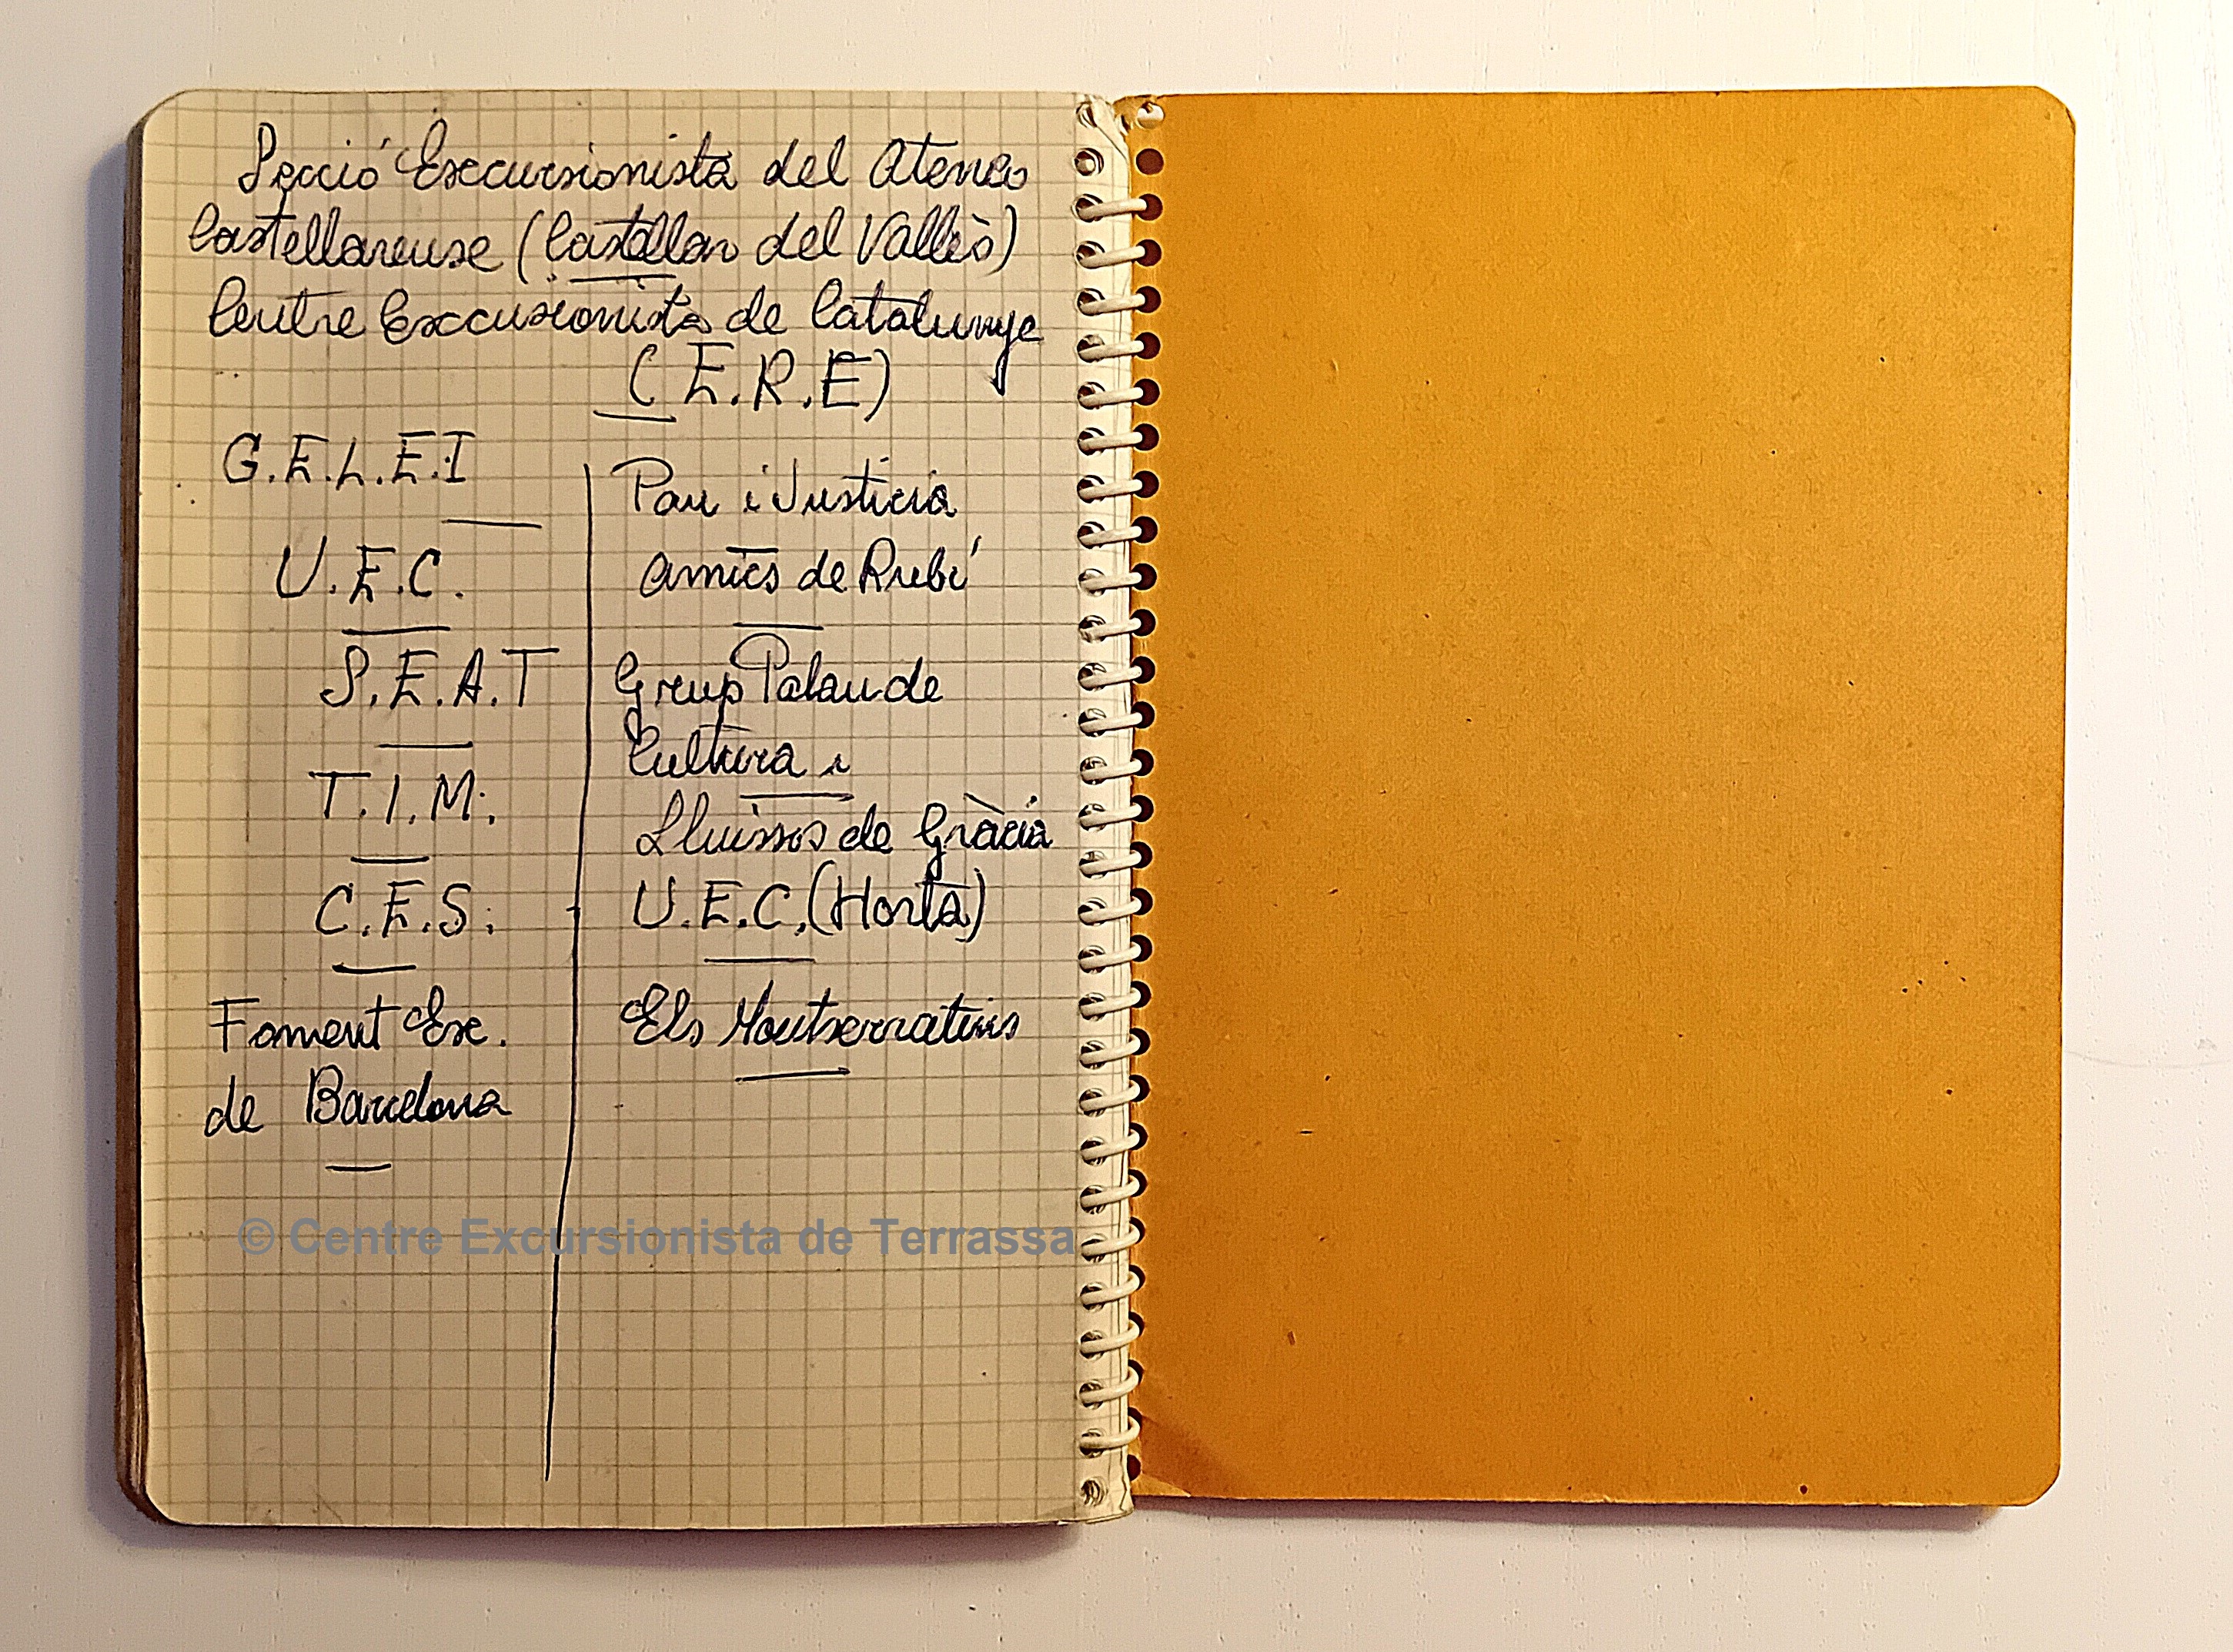 Secció Excursionista del Ateneo
Castellarense (Castellar del Vallès)
Centre Excursionista de Catalunya
(E.R.E)
G.E.L.E.I
U.E.C.
S.E.A.T
T.I.M.
C.E.S.
Foment Exc.
de Barcelona
Pau i Justicia
Amics de Rubí
Grup Palau de
Cultura i
Lluïssos de Gràcia
U.E.C. (Horta)
Els Montserratins
© Centre Excursionista de Terrassa